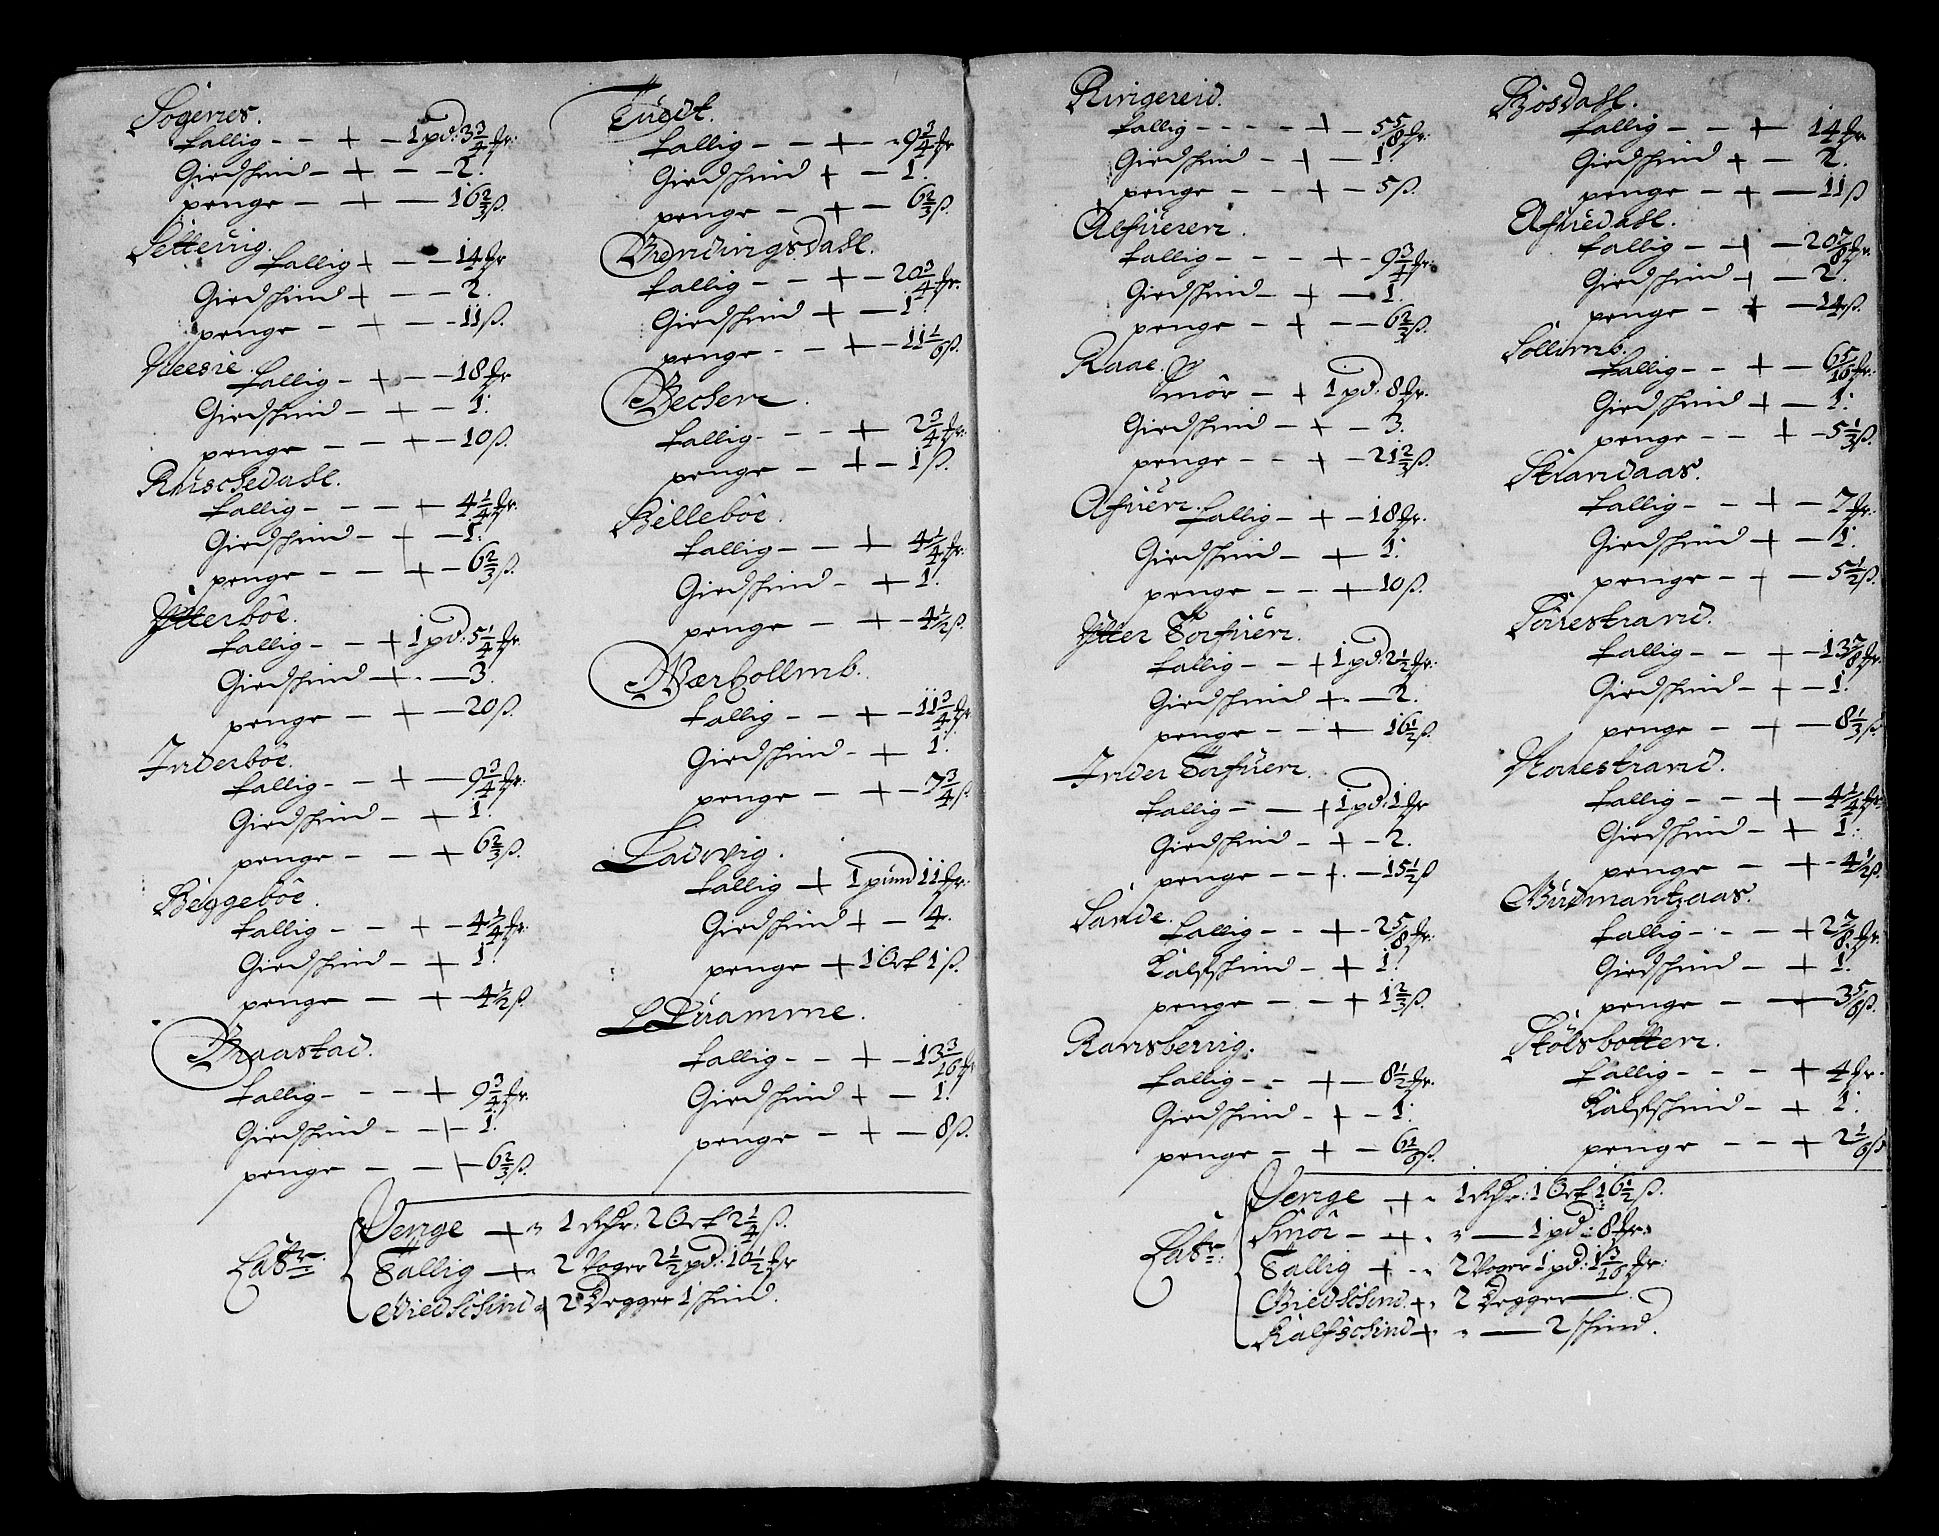 Sogenes.
tallig - - + - 1 pd: 3 3/4 fr:
Giedschind - + - - 2.
penge - + - 16 2/3 ß.
Settevig.
tallig + - - 14 fr
Giedschind + - - 2.
penge - - + - - 11 ß.
Neesie.
tallig - + - - 18 fr
Giedschind - + - 1.
penge - - + - 10 ß.
Ruschedall.
tallig - - - + 4 1/4 fr.
Giedschind - + - 1.
penge - - - + - 6 2/3 ß.
Ytterböe.
tallig - - + 1 pd: 5 1/4 fr.
Giedschind - + - - 3.
penge - + - 20 ß.
Inderböe.
tallig - - + - 9 3/4 fr.
Giedschind - + 1.
penge - - + 6 2/3 ß.
Böggeböe.
tallig - - + - 4 1/4 fr.
Giedschind - + 1.
penge - + - 4 1/2 ß.
Braastad.
tallig - - - + 9 3/4 fr.
Giedschind - - + 1.
penge - - + - 6 2/3 ß.
Tuedt.
tallig - - + - 9 3/4 fr
Giedschind + - 1.
penge - + - 6 2/3 ß.
Gendingsdall.
tallig - - + - 20 3/4 fr.
Giedschind + - 1.
penge - - + - 11 1/6 ß.
Bechen.
tallig - - - + 2 3/4 fr.
penge - + - 1 ß.
Billeböe.
tallig - - + 4 1/4 fr.
Giedschind - + 1.
penge - - + - 4 1/2 ß.
Wærhollmb.
tallig - - + - 11 3/4 fr
Giedschind - + 1.
penge - + - 7 3/4 ß
Ladvig.
tallig + 1 pund 11 fr.
Giedschind + - 4.
penge + 1 Ort 1 ß.
Duramme.
tallig - - + - 13 3/16 fr
Giedschind + - 1.
penge - + - 8 ß.
Penge + " 1 Rdr: 2 Ort 2 1/4 ß.
Latr: Tallig + " 2 Voger 2 1/2 pd: 10 1/2 fr
Giedschind + 2 Degger 1 schind.
Ringereid.
tallig - - - - + - 5 5/8 fr.
Giedschind - + - 1
penge - - + - 5 ß.
Alfueren.
tallig - - - + - 9 3/4 fr.
Giedschind - + - 1.
penge - + - - 6 2/3 ß.
Raae.
Smör - + 1 pd: 8 fr.
Giedschind - + - 3.
penge - - + - 21 2/3 ß.
Afuen.
tallig - + - 18 fr.
Giedschind - + 1.
penge - - + - 10 ß.
Ytter Torfuen.
tallig - - + 1 pd: 2 1/2 fr.
Giedschind + - 2.
penge - - + - 16 1/2 ß.
Inder Torfuen.
tallig - - + 1 pd: 1 fr
Giedschind - + - 2.
penge - - + - 15 1/2 ß
Sande.
tallig - - + - 2 5/8 fr.
Kalfschind - + 1.
penge - - + 1 2/3 ß.
Ransbervig.
tallig - - + - 8 1/2 fr.
Giedschind - + - 1.
penge - + - 6 1/6 ß.
Bosdall.
tallig - - + - 14 fr
Giedschind + - 2.
penge - + - 11 ß
Afuedall.
tallig - - + - 20 7/8 fr.
Giedschind + - 2.
penge - + - 14 ß.
Sollumb.
tallig - - + - 6 5/16 fr.
Giedschind + - 1.
penge - - + - 5 1/3 ß.
Strandaas.
tallig - - + - 7 fr.
Giedschind + - 1.
penge - + - 5 1/2 ß.
Sörestrand.
tallig - - + - 13 7/8 fr.
Giedschind - + - 1.
penge - + - 8 1/3 ß
Norestrand.
tallig - - + - 4 1/4 fr.
Giedschind - + 1.
penge - + - 4 1/2 ß.
Gudmantzaas.
tallig - - - + 2 7/8 fr.
Giedschind - + 1.
penge - + - 3 5/8 ß.
Skölsbotten.
tallig - - - + 4 fr.
Kalfschind - + 1.
penge - - + 2 1/6 ß
Penge + " 1 Rdr: 1 Ort 16 1/2 ß.
Smör - + " - 1 pd: 8 fr.
Latr: Tallig + " 2 Voger 1 pd: 1 3/16 fr.
Giedschind + " 2 Degger -
Kalfschind + " - 2 schind.